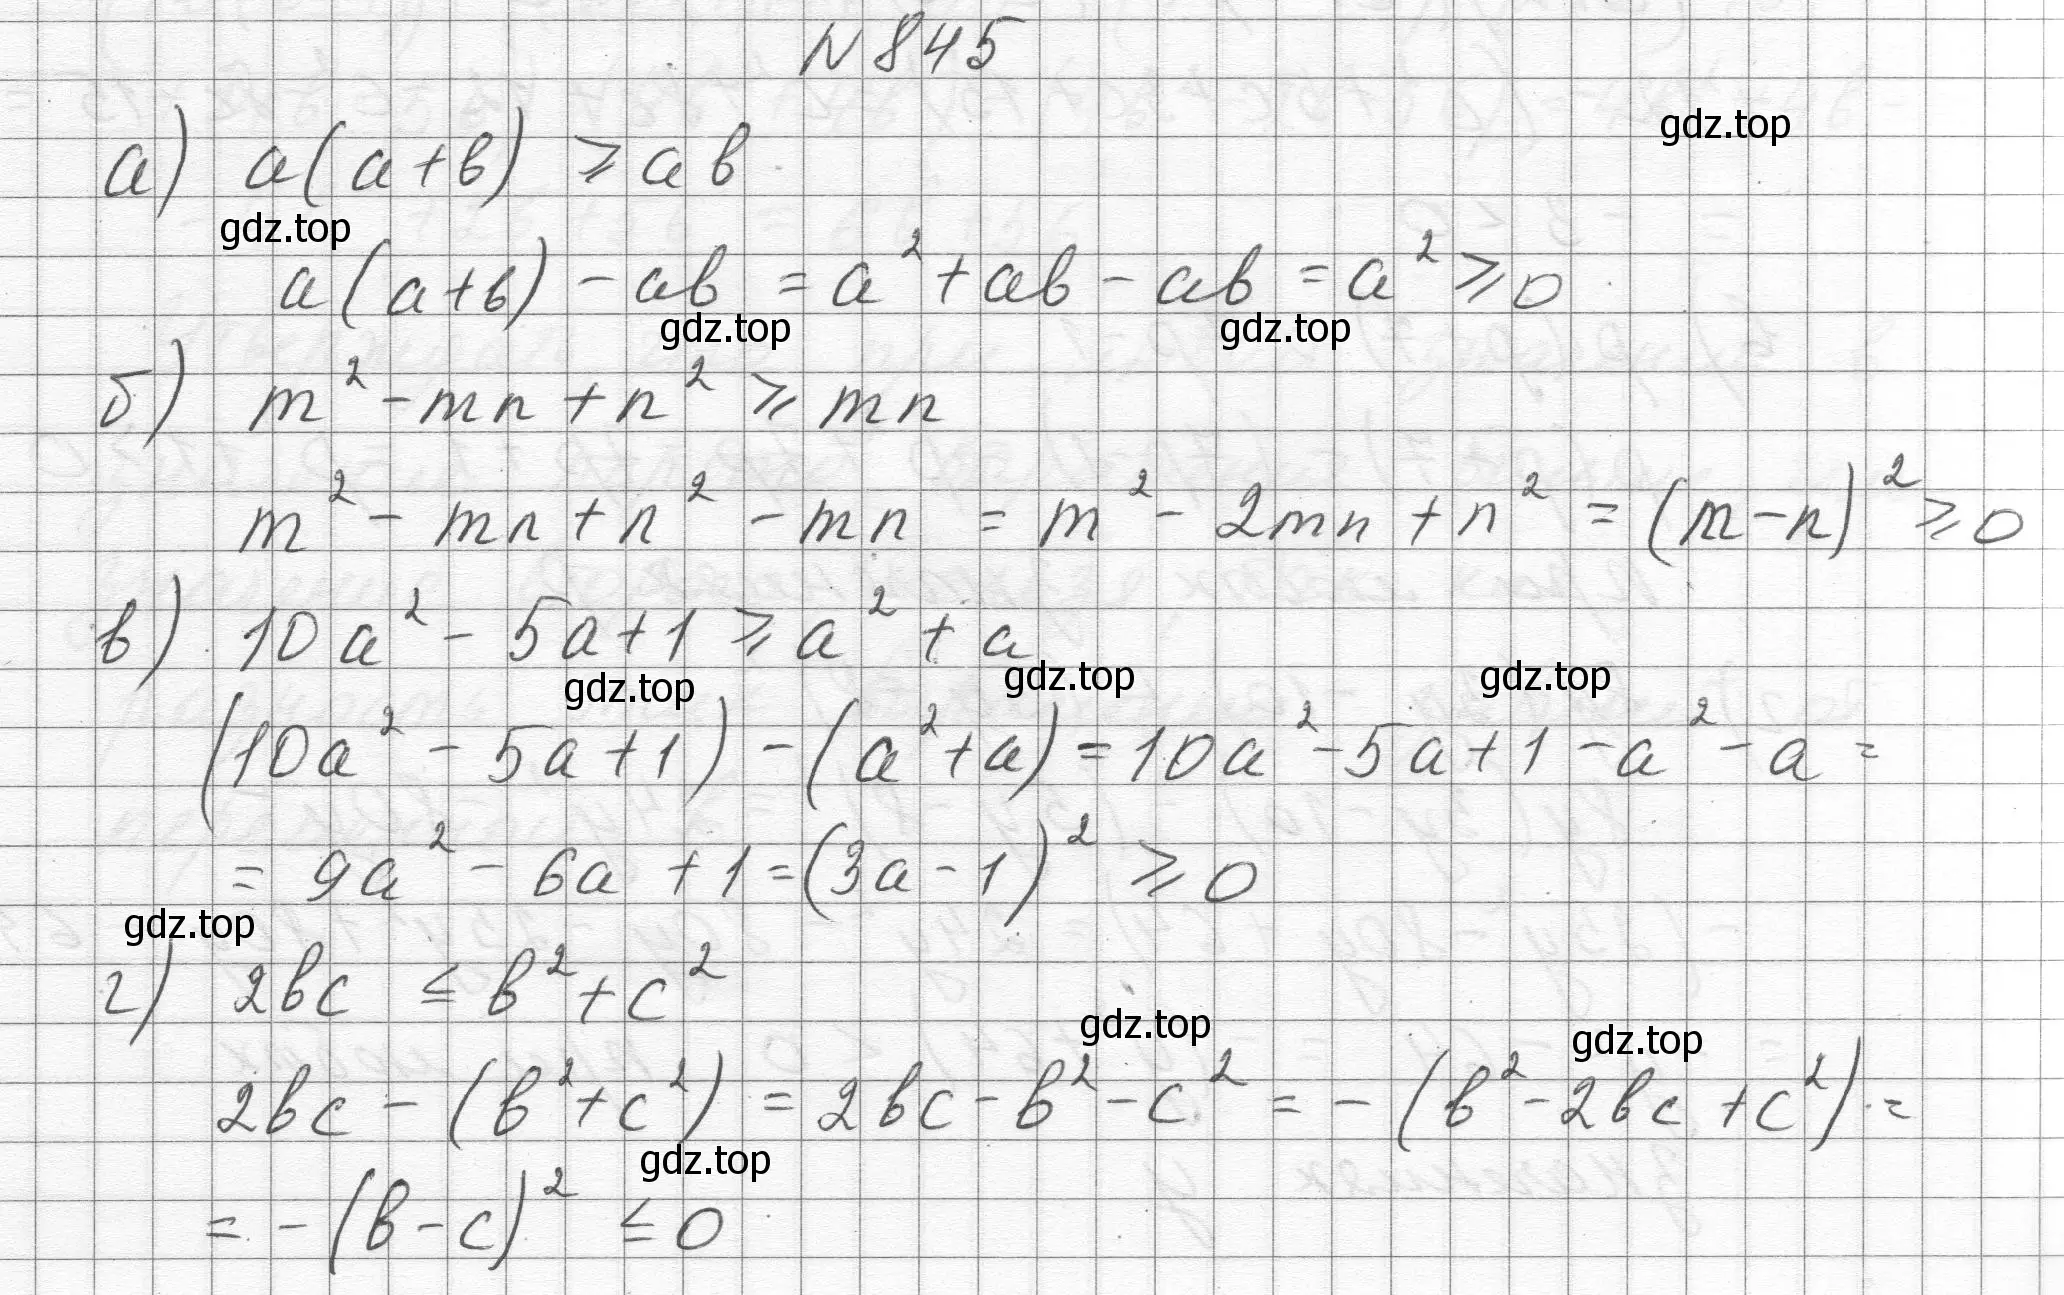 N 845
gdz.top
а) a(a+b) ⩾ ab
gdz.top
a(a+b) - ab = a² + ab - ab = a² ⩾ 0
gdz.top gdz.top
б) m² - mn + n² ⩾ mn
m² - mn + n² - mn = m² - 2mn + n² = (m-n)² ⩾ 0
в) 10a² - 5a + 1 ⩾ a² + a
gdz.top gdz.top gdz.top
(10a² - 5a + 1) - (a² + a) = 10a² - 5a + 1 - a² - a =
= 9a² - 6a + 1 = (3a - 1)² ⩾ 0
gdz.top
г) 2bc ≤ b² + c²
gdz.top gdz.top
2bc - (b² + c²) = 2bc - b² - c² = - (b² - 2bc + c²) =
gdz.top
= - (b - c)² ≤ 0